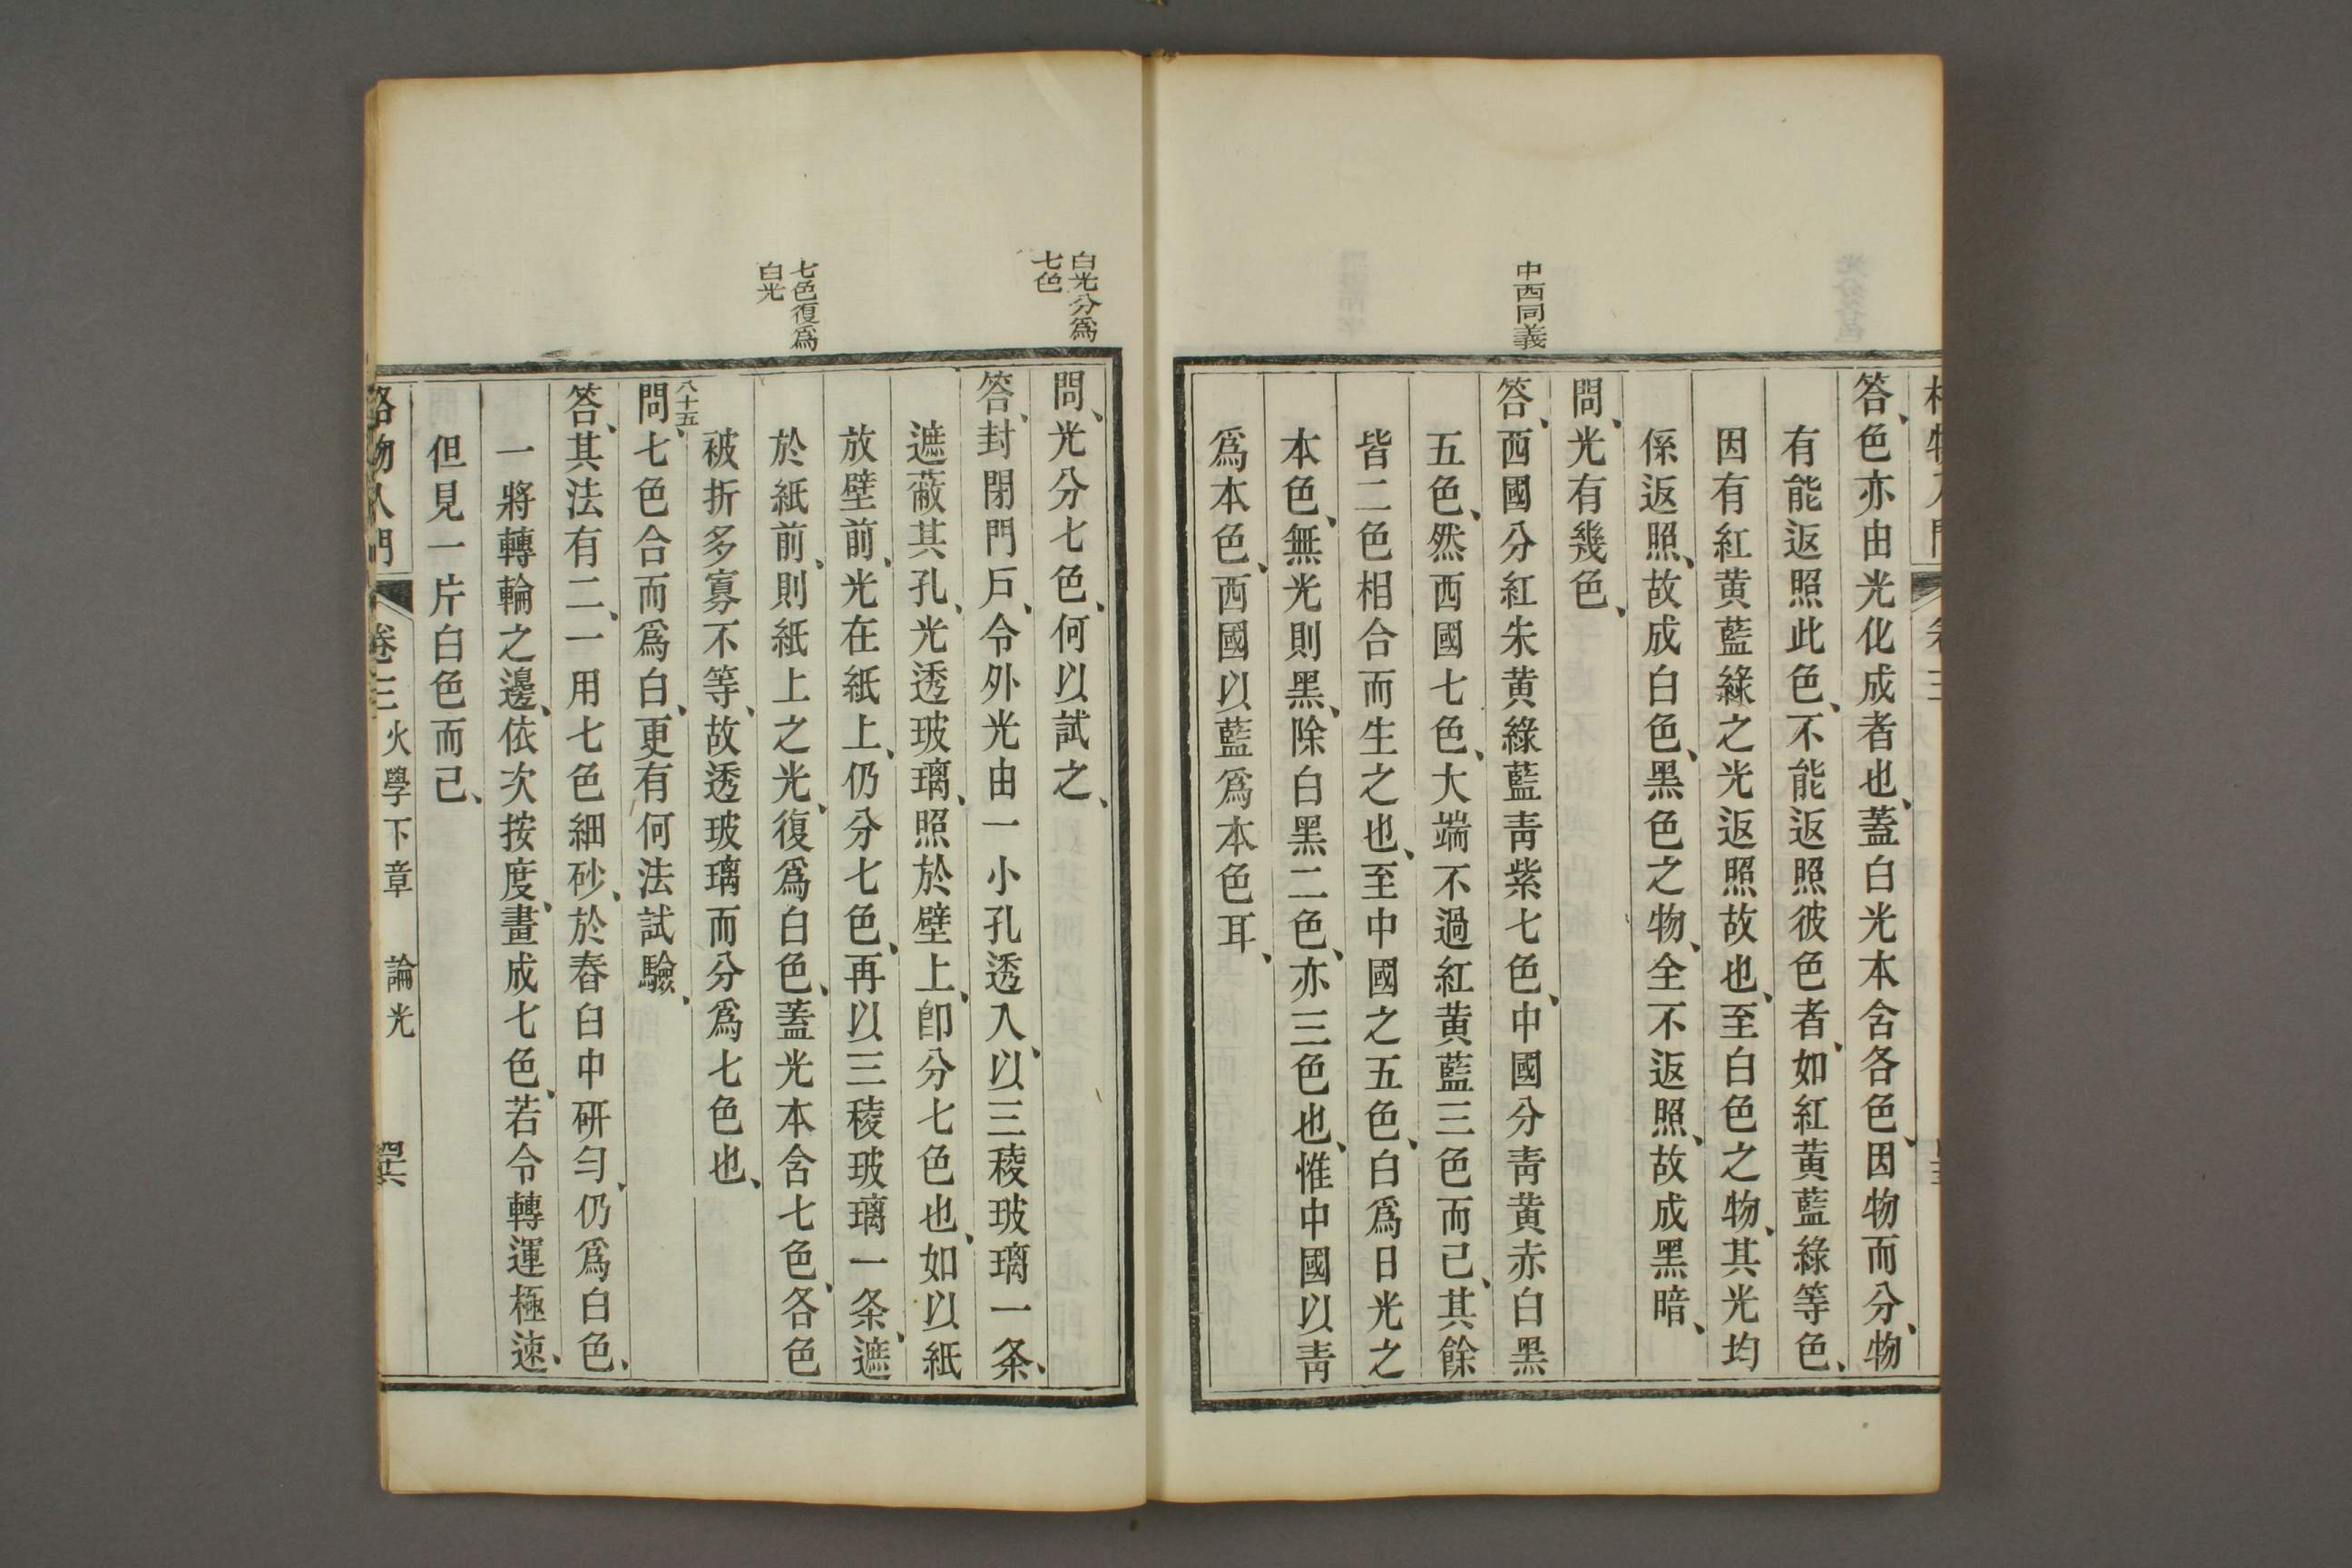 答、色亦由光化成者也、蓋白光本含各色、因物而分、物
有能返照此色、不能返照彼色者、如紅黄藍綠等色、
因有紅黄藍綠之光返照故也、至白色之物、其光均
係返照、故成白色、黑色之物、全不返照、故成黑暗、
問、光有幾色、
中西同義
答、西國分紅朱黄綠藍靑紫七色、中國分靑黄赤白黑
五色、然西國七色、大端不過紅黄藍三色而已、其餘
皆二色相合而生之也、至中國之五色、白爲日光之
本色、無光則黑、除白黑二色、亦三色也、惟中國以靑
爲本色、西國以藍爲本色耳、
白光分爲
七色
問、光分七色、何以試之、
答、封閉門戶、令外光由一小孔透入、以三稜玻璃一条、
遮蔽其孔、光透玻璃、照於壁上、卽分七色也、如以紙
放壁前、光在紙上、仍分七色、再以三稜玻璃一条、遮
七色復爲
白光
於紙前、則紙上之光、復爲白色、蓋光本含七色、各色
被折多寡不等、故透玻璃而分爲七色也、
八十五
問、七色合而爲白、更有何法試驗、
答、其法有二、一用七色細砂、於舂臼中研勻、仍爲白色、
一將轉輪之邊、依次按度、畫成七色、若令轉運極速、
但見一片白色而已、
格物入門 卷三 火學下章 論光 四六